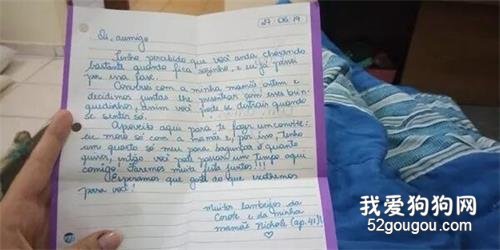 27.06.19
Oi, aumigo
Tenho percebido que você anda chorando
bastante quando fica sozinho, e eu já passei
por essa fase.
Conversei com a minha mamãe ontem e
decidimos juntas lhe presentear com esses brin-
quedinhos, assim você pode se distrair quando
se sentir só.
Aproveito aqui para te fazer um convite:
eu moro só com a mamãe e, por isso, tenho
um quarto só meu para bagunçar o quanto
quiser, então você pode passar um tempo aqui
comigo. Faremos muita festa juntos!!!
Esperamos que goste do que escolhemos
para você!
Muitos lambeijos da
e da minha
mamãe Nichole (ap. 41)!
我爱狗狗网
52gougou.com